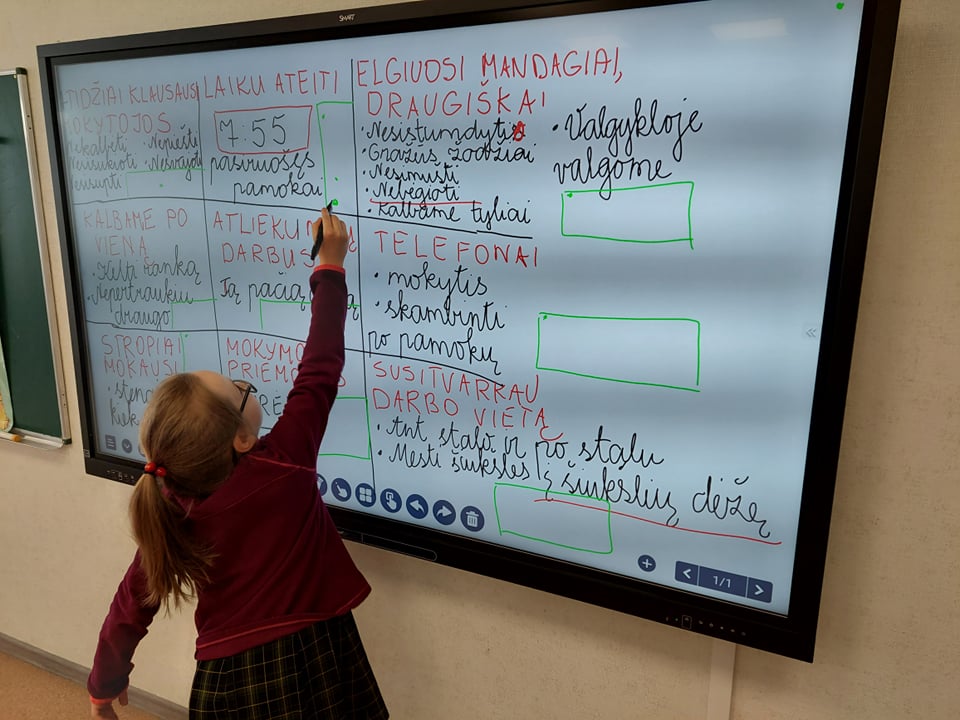 SMART
KLAUSAUSI
MOKYTOJOS
Nekalbėti • Nepiešti
Nesisukioti • Nesivaryti
Nesisupti
LAIKU ATEITI
7:55
pasiruošęs
pamokai
ELGIUOSI MANDAGIAI,
DRAUGIŠKAI
• Nesistumdyti
• Gražūs žodžiai
• Nesimušti
• Nebėgioti
• Kalbame tyliai
• Valgykloje
valgome
KALBAME PO
VIENĄ
• Kelti ranką
• Nepertraukiu
draugo
DARBUS
Tą pačią
TELEFONAI
• mokytis
• skambinti
po pamokų
STROPIAI
MOKAUSI
kiek
SUSITVARKAU
DARBO VIETĄ
• Ant stalo ir po stalu
• Mesti šiukšles į šiukšlių dėžę
1/1